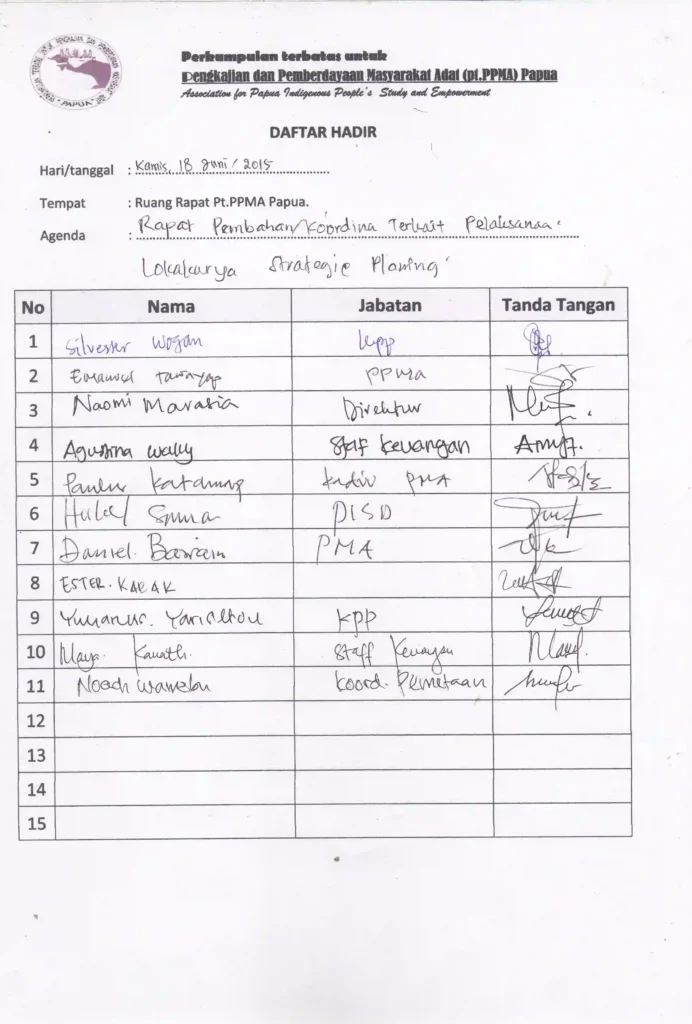 PAPUA
Perkumpulan terbatas untuk
Pengkajian dan Pemberdayaan Masyarakat Adat (pt.PPMA) Papua
Association for Papua Indigenous People's Study and Empowerment
DAFTAR HADIR
Hari/tanggal : Kamis, 18 Juni / 2015
Tempat : Ruang Rapat Pt.PPMA Papua.
Agenda : Rapat Pembahan/Koordina Terkait Pelaksanaa
Lokakarya Strategic Planing
No Nama Jabatan Tanda Tangan
1 Silvester Wogan kpp
2 PPMA
3 Naomi Marasia Direktur
4 Agustina Wally Staf keuangan
5 Kadiv PMA
6 PISD
7 Daniel. PMA
8 ESTER. KABAK
9 Yunanus. KPP
10 Maya. Staff Keuangan
11 Noach Wamebu Koord. Pemetaan
12
13
14
15